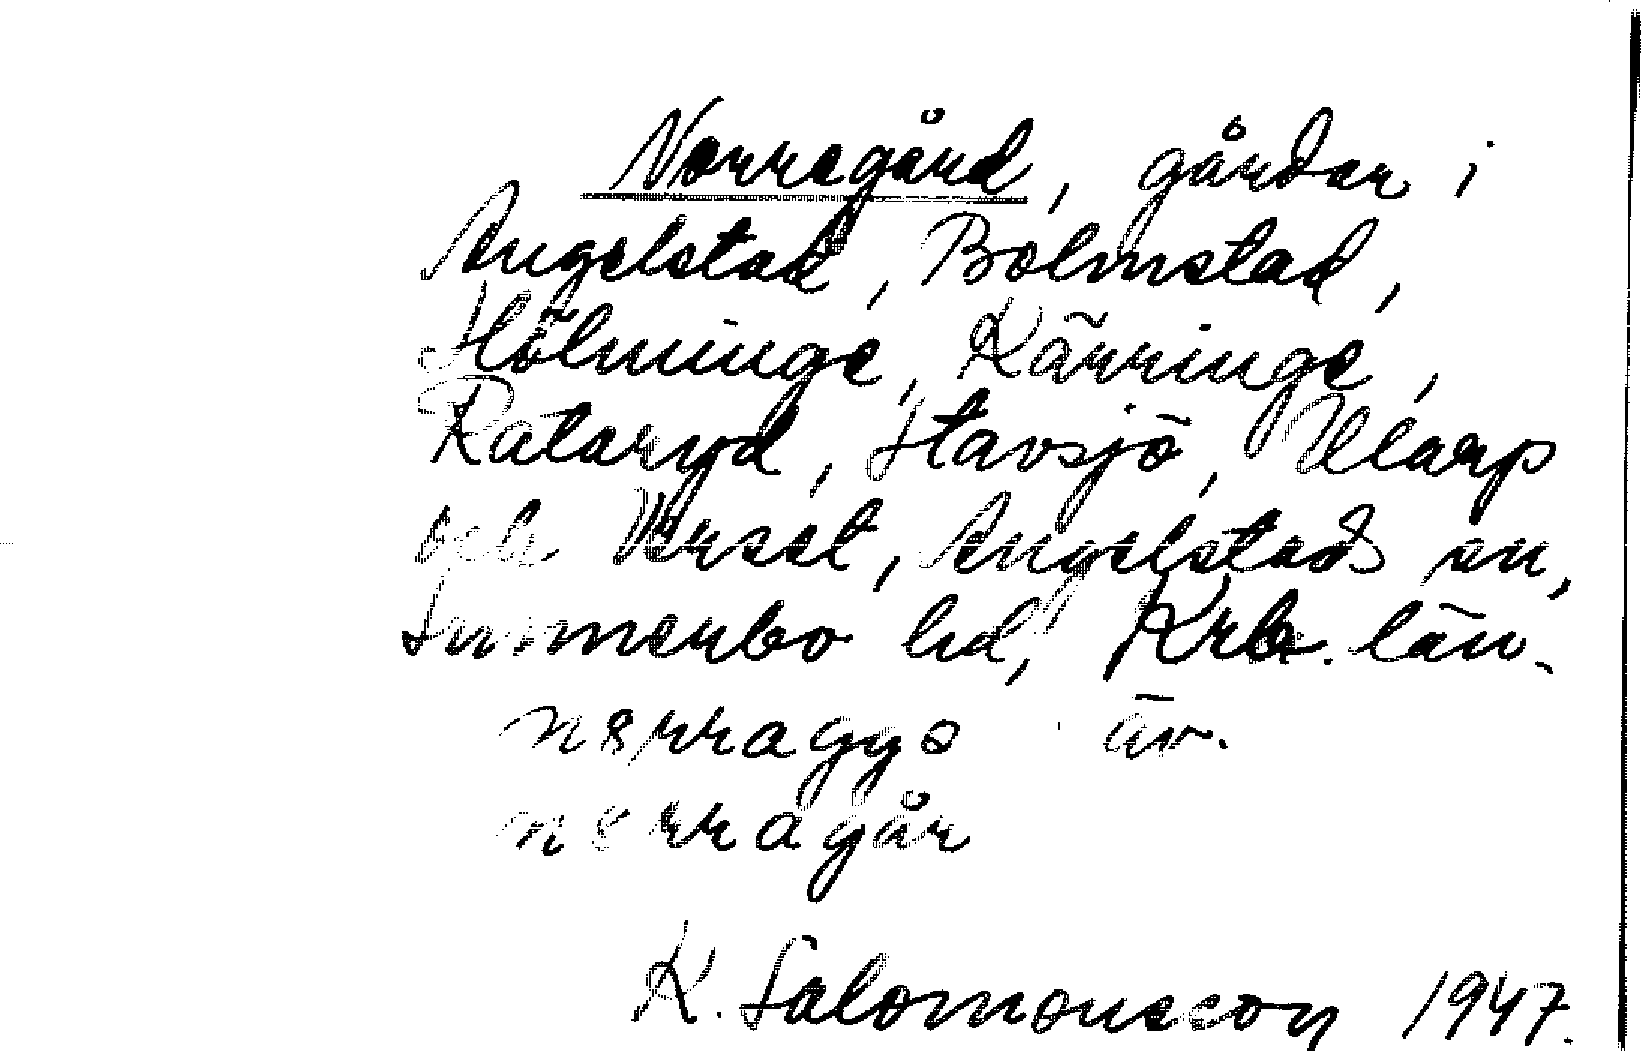 Norregård, gårdar i
Angelstad, Bolmstad,
Hölminge, Kärringe,
Rataryd, Stavsjö, Ularp
och Verset, Angelstads sn,
Sunnerbo hd, Krb. län.
n8rraggo äv.
n8rragår
K. Salomonsson 1947.